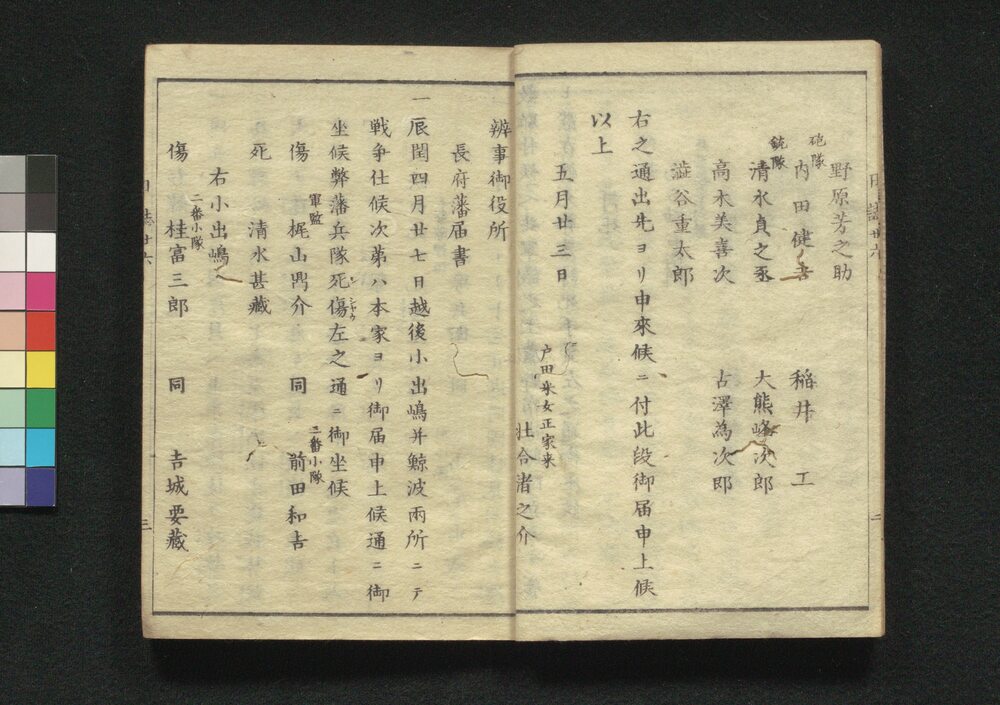 野原芳之助
砲隊 内田健吉 稲井 工
銃隊 清水貞之丞 大熊峰次郎
高木美喜次 古澤為次郎
澁谷重太郎
右之通出先ヨリ申來候ニ付此段御届申上候
以上
五月廿三日
戸田采女正家来
合渚之介
辨事御役所
長府藩届書
一辰閏四月廿七日越後小出嶋并鯨波兩所ニテ
戦争仕候次第ハ本家ヨリ御届申上候通ニ御
坐候弊藩兵隊死傷左之通ニ御坐候
傷 軍監 梶山鼎介 同 二番小隊 前田和吉
死 清水甚藏
右小出嶋ヘ
傷 二番小隊 桂富三郎 同 吉城要藏
三